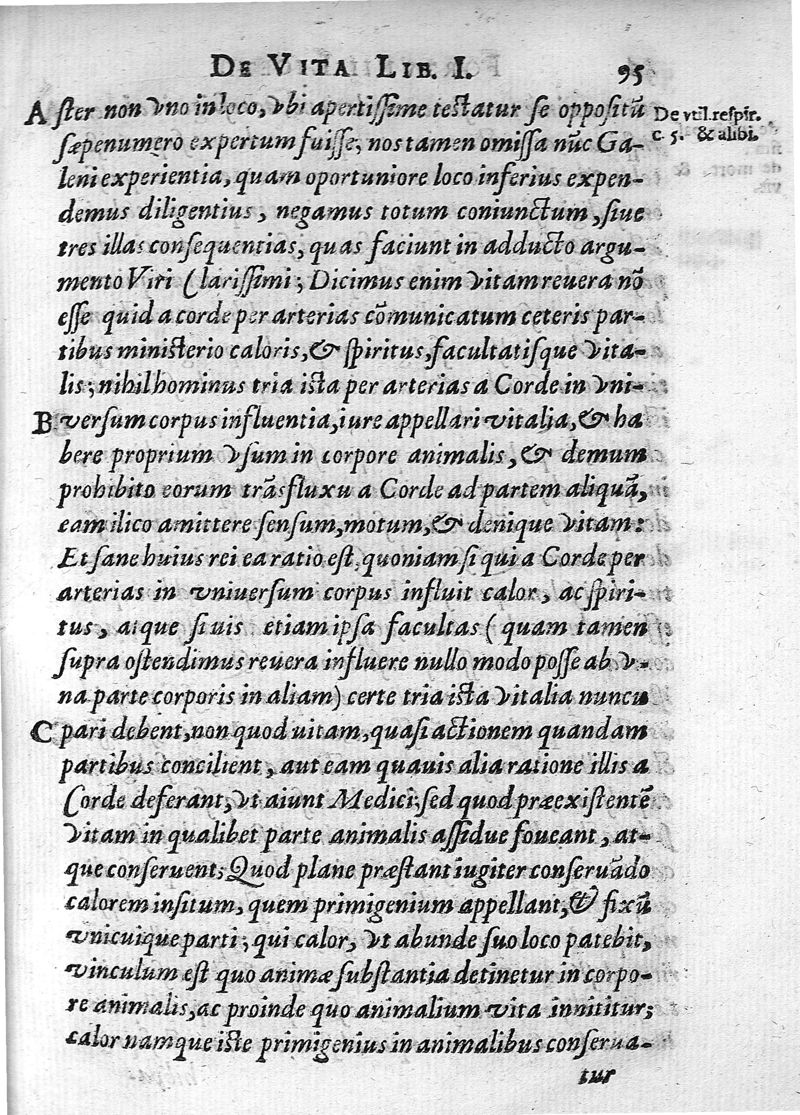 DE VITA LIB. I. 95
A ster non vno in loco, vbi apertissime testatur se oppositū De vtil. respir.
sæpenumero expertum fuisse; nos tamen omissa nūc Ga- c. 5. & alibi.
leni experientia, quam oportuniore loco inferius expen-
demus diligentius, negamus totum coniunctum, siue
tres illas consequentias, quas faciunt in adducto argu-
mento Viri Clarissimi; Dicimus enim vitam reuera nō
esse quid a corde per arterias cōmunicatum ceteris par-
tibus ministerio caloris, & spiritus, facultatisque vita-
lis; nihilhominus tria ista per arterias a Corde in vni-
B versum corpus influentia, iure appellari vitalia, & ha
bere proprium vsum in corpore animalis, & demum
prohibito eorum trāsfluxu a Corde ad partem aliquā,
eam ilico amittere sensum, motum, & denique vitam:
Et sane huius rei ea ratio est, quoniam si qui a Corde per
arterias in vniuersum corpus influit calor, ac spiri-
tus, atque si uis etiam ipsa facultas (quam tamen
supra ostendimus reuera influere nullo modo posse ab v-
na parte corporis in aliam) certe tria ista vitalia nuncu
C pari debent, non quod uitam, quasi actionem quandam
partibus concilient, aut eam quauis alia ratione illis a
Corde deferant, vt aiunt Medici; sed quod præexistentē
vitam in qualibet parte animalis assidue foueant, at-
que conseruent; Quod plane præstant iugiter conseruādo
calorem insitum, quem primigenium appellant, & fixū
vnicuique parti; qui calor, vt abunde suo loco patebit,
vinculum est quo animæ substantia detinetur in corpo-
re animalis, ac proinde quo animalium vita innititur;
calor namque iste primigenius in animalibus conserua-
tur